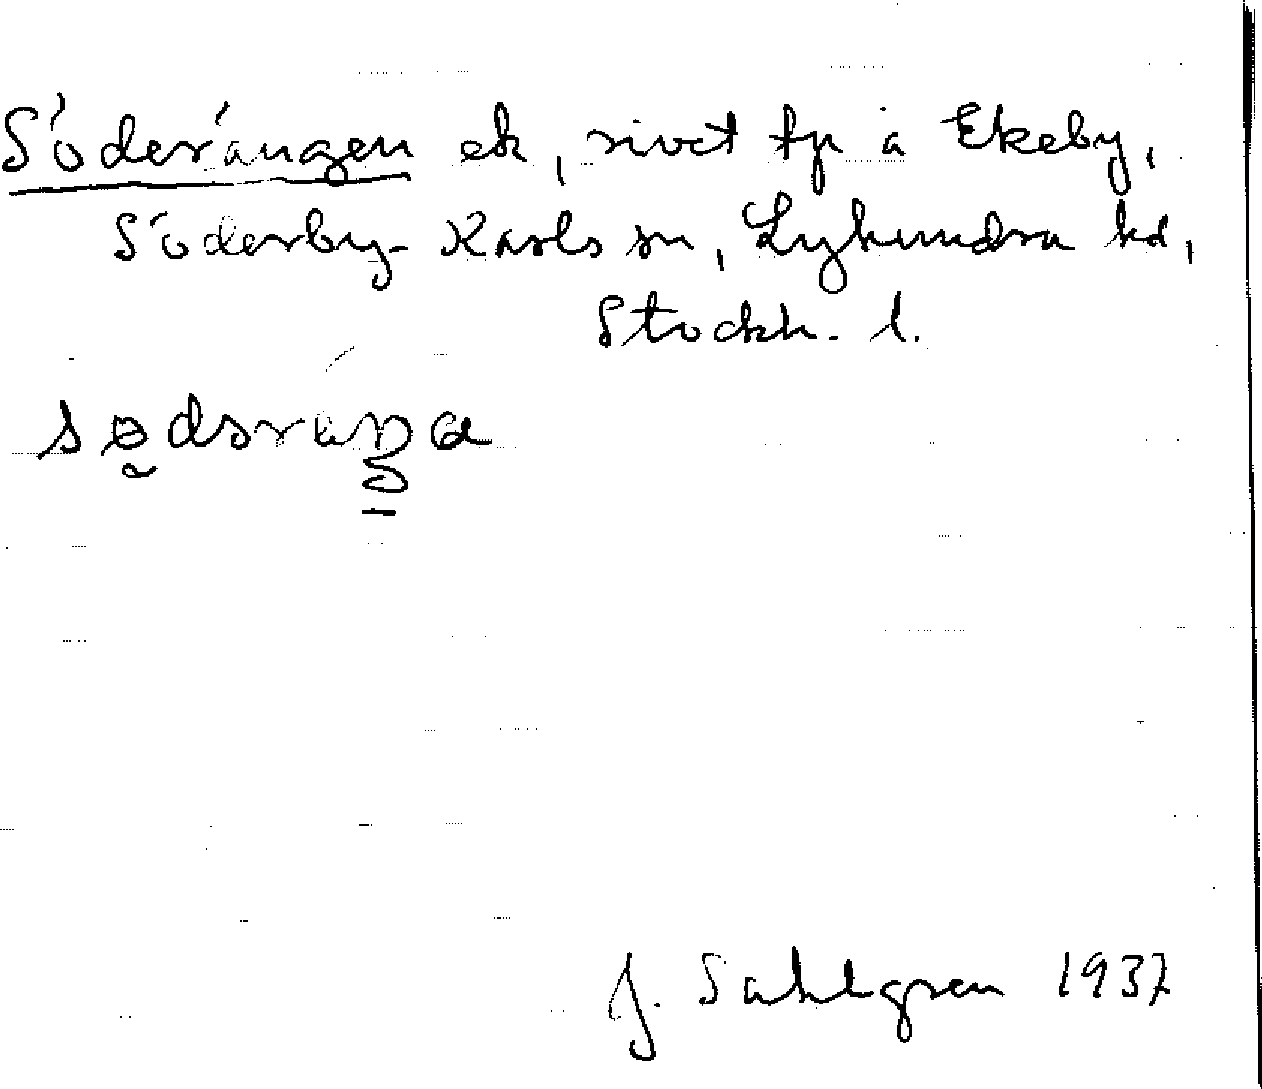 Söderängen ek, rivet tp å Ekeby,
Söderby-Karls sn, Lyhundra hd,
Stockh. l.
J. Sahlgren 1937